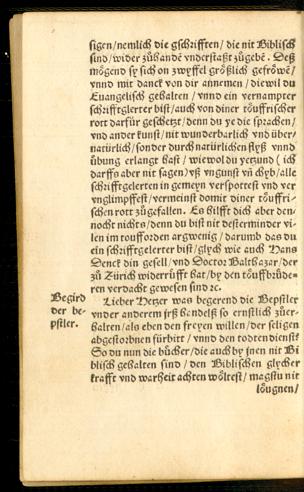 sigen/nemlich die gschrifften/ die nit Biblisch
sind/wider zůhandē vnderstaßt zůgebē. Deß
mögend sy sich on zwyffel größlich gefröwē/
vnnd mit danck von dir annemen/ die wil du
Euangelisch gehalten/ vnnd ein vernampter
schrifftglerter bist/auch von diner töuffrischer
rott darfür geschetzt/denn du ye die sprachen/
vnd ander kunst/nit wunderbarlich vnd über/
natürlich/sonder durch natürlichen flyß vnnd
übung erlangt hast/ wiewol du yetzund (ich
darffs aber nit sagen) vß vngunst vñ dhyb/alle
schrifftgelerten in gemeyn verspottest vnd ver
vnglimpffest/vermeinst domit diner töuffri-
schen rott zůgefallen. Es hilfft dich aber den-
nocht nichts/denn du bist nit desterminder vi-
len im toufforden argwenig/ darumb das du
ein schrifftgelerter bist/glych wie auch Hans
Denck din gesell/vnd Doctor Balthazar/der
zů Zürich widerrüfft hat/by den töuffbrüde-
ren verdacht gewesen sind ꝛc.
Begird
der be-
pstler.
Lieber Hetzer was begerend die Bepstler
vnder anderem jrß handelß so ernstlich zůer-
halten/als eben den freyen willen/der seligen
abgestorbnen fürbitt/ vnnd den todtendienst
So du nun die bücher/die auch by jnen nit Bi
blisch gehalten sind/ den Biblischen glycher
krafft vnd warheit achten wöltest/ magstu nit
löugnen/